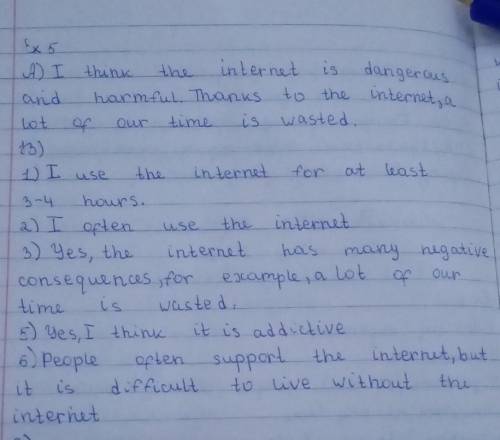 Ex 5
A) I think the internet is dangerous
and harmful. Thanks to the internet, a
lot of our time is wasted.
B)
1) I use the internet for at least
3-4 hours.
2) I often use the internet
3) Yes, the internet has many negative
consequences, for example, a lot of our
time is wasted.
5) Yes, I think it is addictive
6) People often support the internet, but
it is difficult to live without the
internet